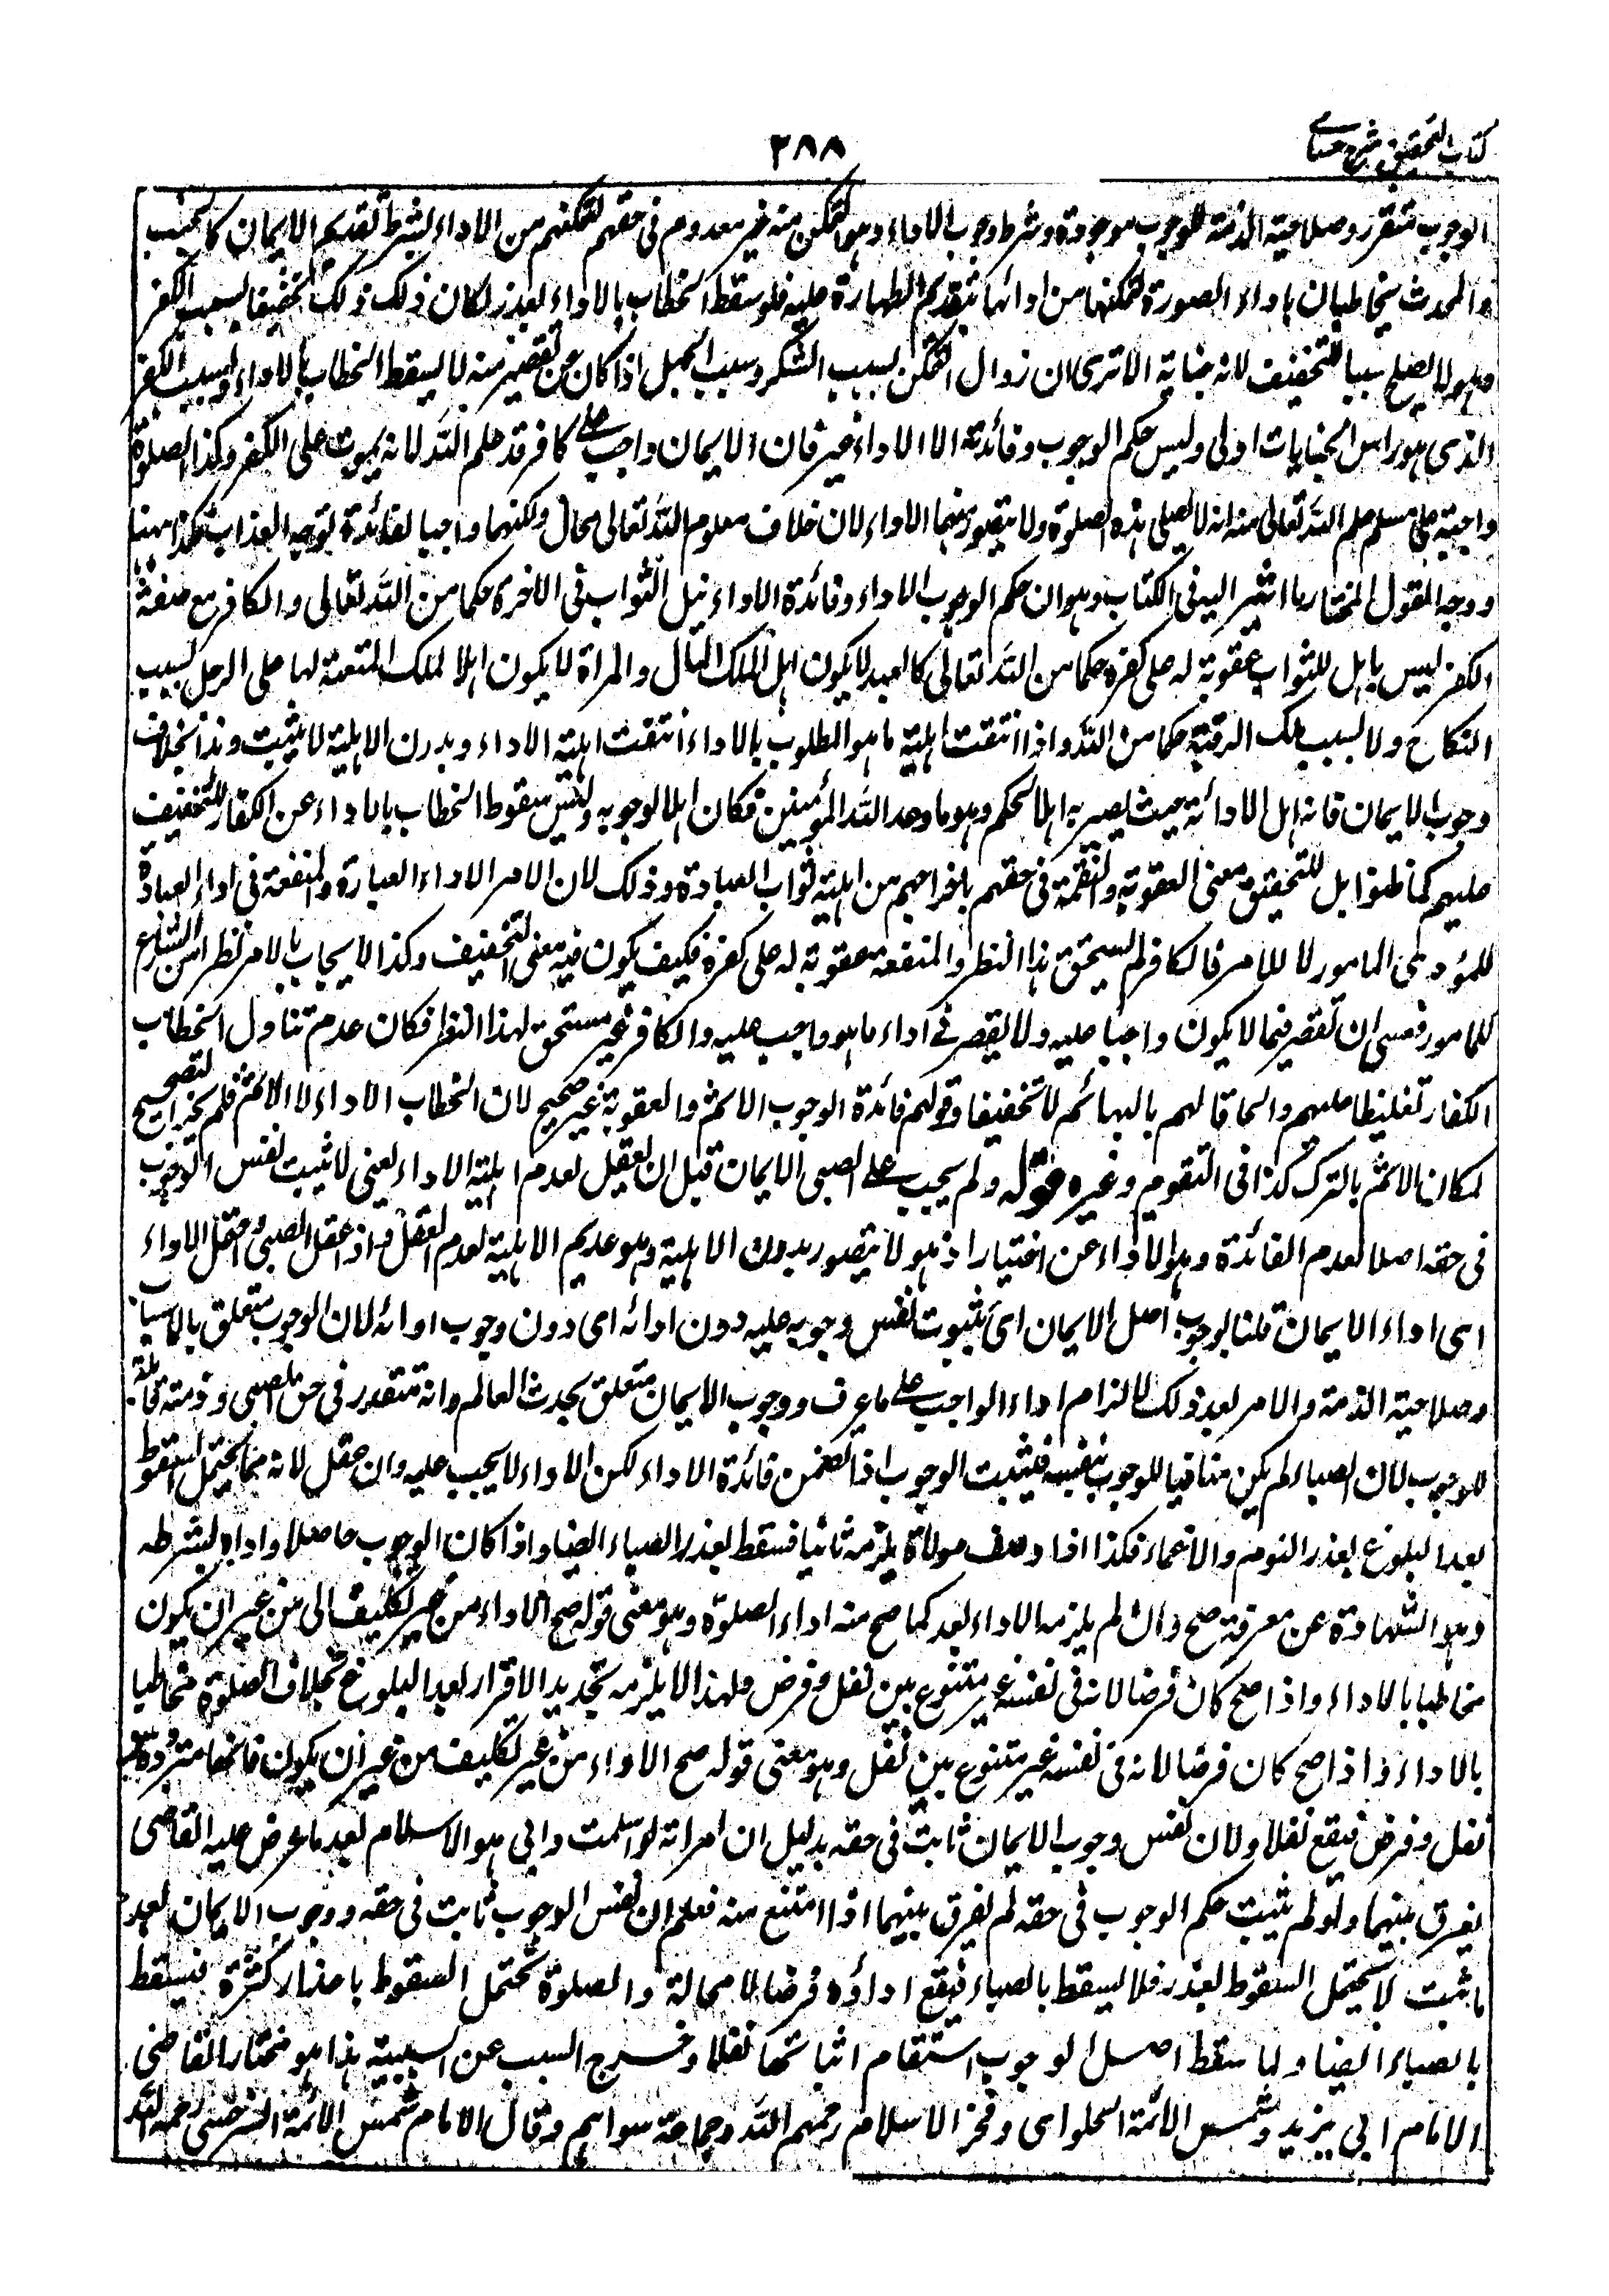 كتاب التحقيق شرح حسامى
٢٨٨
الوجوب متقرر وصلاحية الذمة للوجوب موجودة وشرط وجوب الاداء وهو التمكن منه غير معدوم فى حقهم لتمكنهم من الاداء بشرط تقديم الايمان كالجنب
والمحدث يخاطبان باداء الصلوة لتمكنهما من ادائها بتقديم الطهارة عليه فلو سقط الخطاب بالاداء بعد ذلك كان ذلك تخفيفا بسبب الكفر
وهو لا يصلح سببا للتخفيف لانه جناية الا ترى ان زوال التمكن بسبب السكر وسبب الجهل اذا كان عن تقصير منه لا يسقط الخطاب بالاداء فبسبب الكفر
الذى هو راس الجنايات اولى وليس حكم الوجوب وفائدته الا الاداء غير فان الايمان واجب على كافر قد علم الله انه يموت على الكفر وكذا الصلوة
واجبة على مسلم علم الله تعالى منه انه لا يصلى هذه الصلوة ولا يتصور منهما الاداء لان خلاف معلوم الله تعالى محال ولكنهما واجبا لفائدة توجه العذاب فكذا ههنا
ووجه القول المختار ما اشير اليه فى الكتاب وهو ان حكم الوجوب الاداء وفائدة الاداء نيل الثواب فى الاخرة حكما من الله تعالى والكافر مع صفة
الكفر ليس باهل للثواب عقوبة له على كفره حكما من الله تعالى كالعبد لا يكون اهلا لملك المال والمراة لا يكون اهلا لملك المتعة لها على الرجل بسبب
النكاح ولا بسبب ملك الرقبة حكما من الله واذا انتفت اهلية ما هو المطلوب بالاداء انتفت اهلية الاداء وبدون الاهلية لا يثبت وهذا بخلاف
وجوب الايمان فانه اهل لادائه حيث يصير به اهلا لحكم وهو ما وعد الله المؤمنين فكان اهلا لوجوبه وليس سقوط الخطاب بالاداء عن الكفار للتخفيف
عليهم كما ظنوا بل لتحقيق معنى العقوبة والنقمة فى حقهم باخراجهم من اهلية ثواب العبادة وذلك لان الامر لاداء العبادة والمنفعة فى اداء العبادة
للمؤدى المامور لا للامر فالكافر لم يستحق هذا النظر والمنفعة عقوبة له على كفره فكيف يكون فيه معنى التخفيف وكذا الايجاب بالامر نظر من الشارع
للمامور فعسى ان تقصر فيما لا يكون واجبا عليه ولا يقصر فى اداء ما هو واجب عليه والكافر غير مستحق لهذا النظر فكان عدم تناول الخطاب
الكفار تغليظا عليهم والحاقا لهم بالبهائم لا تخفيفا وقولهم فائدة الوجوب الاثم والعقوبة غير صحيح لان الخطاب الاداء لا الاثم فلم يجز لتصحيح
لمكان الاثم بالترك كذا فى التقويم وغيره قوله ولم يجب على الصبى الايمان قبل ان يعقل لعدم اهلية الاداء يعنى لا يثبت نفس الوجوب
فى حقه اصلا لعدم الفائدة وهو الاداء عن اختيار اذ هو لا يتصور بدون الاهلية وهو عديم الاهلية لعدم العقل واذا عقل الصبى واحتمل الاداء
اى اداء الايمان قلنا بوجوب اصل الايمان اى بثبوت نفس وجوبه عليه دون ادائه اى دون وجوب ادائه لان الوجوب متعلق بالاسباب
وصلاحية الذمة والامر بعد ذلك لالزام اداء الواجب على ما عرف ووجوب الايمان متعلق بحدث العالم وانه متقرر فى حق الصبى وذمته قابلة
للوجوب لان الصباء لم يكن منافيا للوجوب بنفسه فيثبت الوجوب اذا تضمن فائدة الاداء لكن الاداء لا يجب عليه وان عقل لانه مما يحتمل السقوط
بعد البلوغ بعذر النوم والاغماء فكذا اذا وصف مولاه يلزمه ثانيا فسقط بعذر الصباء ايضا واذا كان الوجوب حاصلا واداه بشرطه
وهو الشهادة عن معرفة صح وان لم يلزمه الاداء بعد كما صح منه اداء الصلوة وهو معنى قوله صح الاداء من غير تكليف الى من غير ان يكون
مخاطبا بالاداء واذا صح كان فرضا لانه فى نفسه غير متنوع بين نفل وفرض ولهذا لا يلزمه تجديد الاقرار بعد البلوغ بخلاف الصلوة مخاطبا
بالاداء واذا صح كان فرضا لانه فى نفسه غير متنوع بين نفل وهو معنى قوله صح الاداء من غير تكليف من غير ان يكون فانها مترددة بين
نفل وفرض فيقع نفلا ولان نفس وجوب الايمان ثابت فى حقه بدليل ان امراته لو اسلمت وابى هو الاسلام بعد ما عرض عليه القاضى
يفرق بينهما ولو لم يثبت حكم الوجوب فى حقه لم يفرق بينهما اذا امتنع منه فعلم ان نفس الوجوب ثابت فى حقه ووجوب الايمان بعد
ما ثبت لا يحتمل السقوط بعذر فلا يسقط بالصباء فيقع اداؤه فرضا لا محالة والصلوة تحتمل السقوط باعذار كثيرة فيسقط
بالصباء ايضا ولما سقط اصل الوجوب استقام اثباتها نفلا وخرج السبب عن السببية هذا هو مختار القاضى
الامام ابى يزيد وشمس الائمة الحلواى وفخر الاسلام رحمهم الله وجماعة سواهم وقال الامام شمس الائمة السرخسى رحمه الله